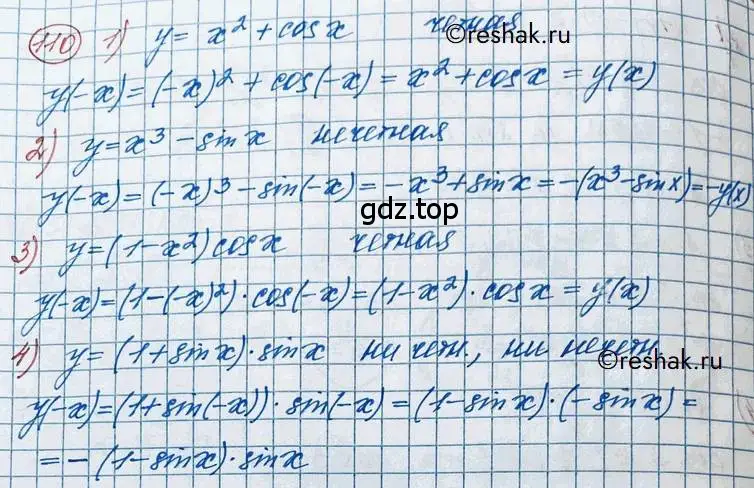 110 1) y = x² + cos x четная
©reshak.ru
y(-x) = (-x)² + cos(-x) = x² + cos x = y(x)
2) y = x³ - sin x нечетная
y(-x) = (-x)³ - sin(-x) = -x³ + sin x = -(x³ - sin x) = -y(x)
gdz.top
3) y = (1 - x²) cos x четная
y(-x) = (1 - (-x)²) · cos(-x) = (1 - x²) · cos x = y(x)
4) y = (1 + sin x) · sin x ни четн., ни нечетн.
©reshak.ru
y(-x) = (1 + sin(-x)) · sin(-x) = (1 - sin x) · (-sin x) =
= -(1 - sin x) · sin x